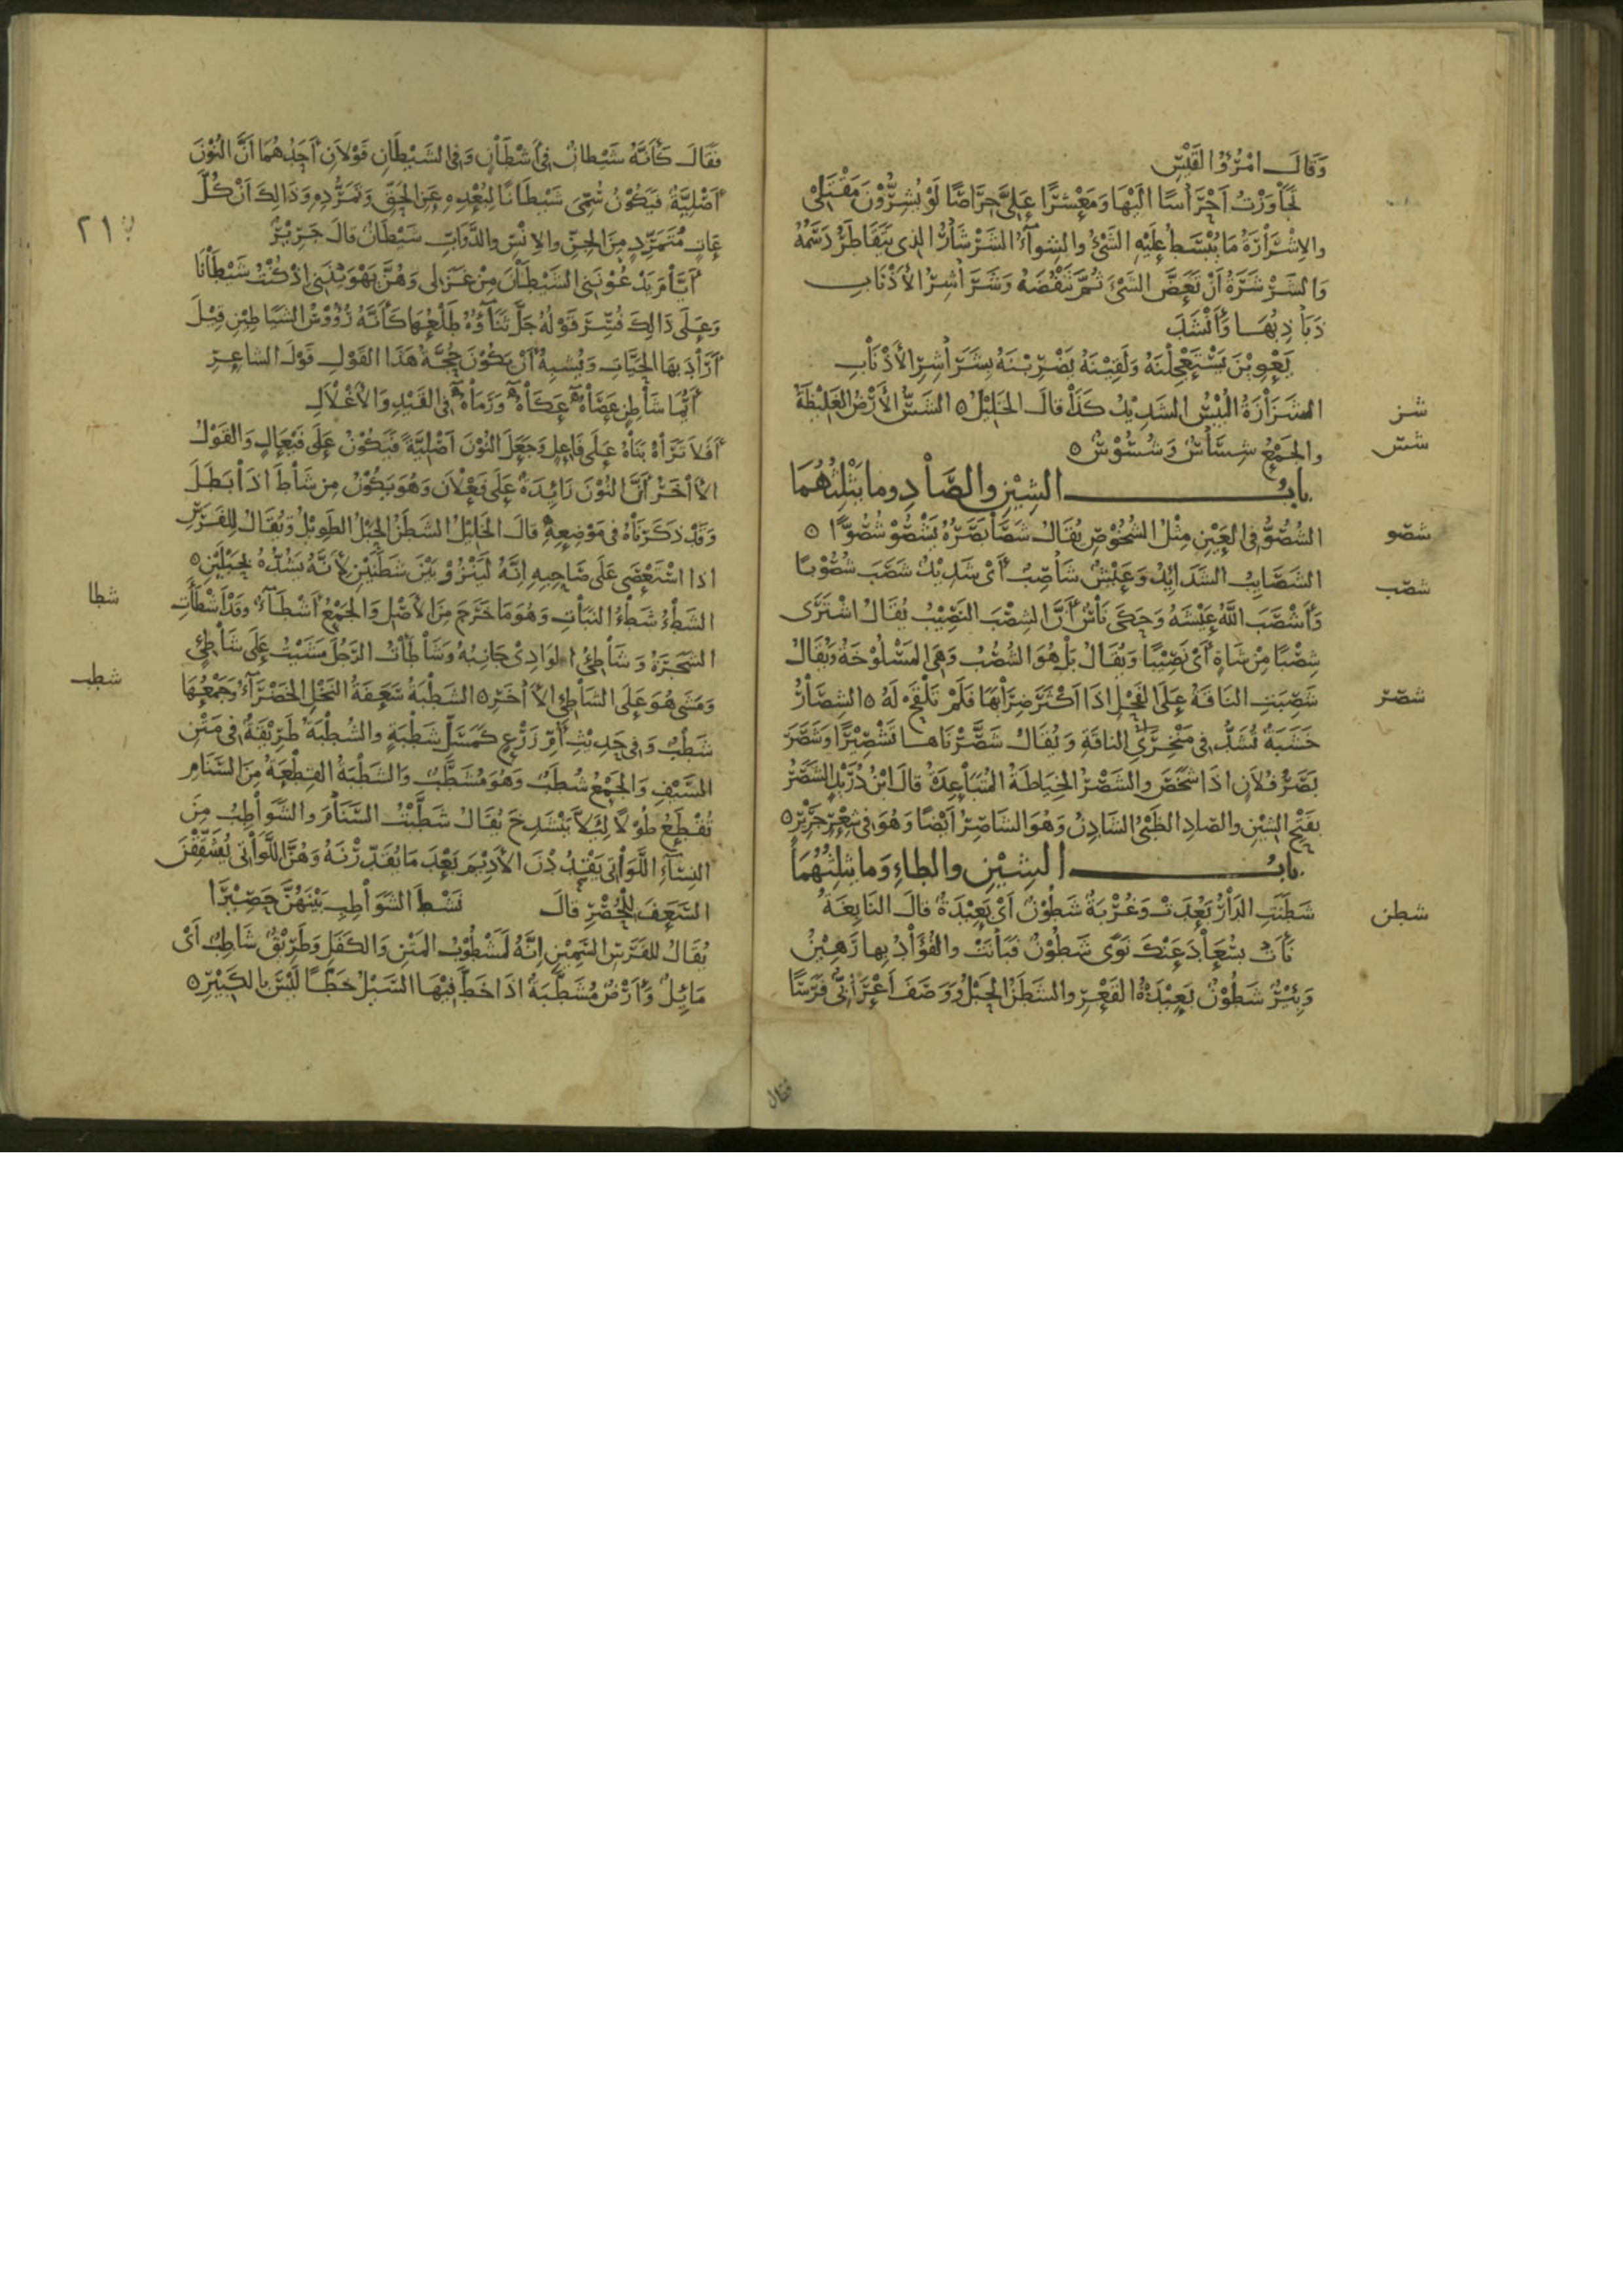 وَقَالَ امْرُؤُ القَيْسِ
تَجَاوَزْتُ أَحْرَاسًا إِلَيْهَا وَمَعْشَرًا عَلَىَّ حِرَاصًا لَوْ يُشِرُّوْنَ مَقْتَلِىْ
والاِشْرَارَةُ مَا يُبْسَطُ عَلَيْهِ الشَّىْءُ والشِوَآءُ الشَرْشَارُ الذى يَتَقَاطَرُ دَسَمُهُ
وَالشَرْشَرَةُ أَنْ تَعَضَّ الشَىْءَ ثُمَّ تَنْفُضَهُ وَشَرَاشِرُ الأَذْنَابِ
ذَبَاذِبُهَا وَأَنْشَدَ
يَعْوِيْنَ يَسْتَعْجِلْنَهُ وَلَقِيْنَهُ يَضْرِبْنَهُ بِشَرَاشِرِ الأَذْنَابِ
شز
الشَزَازَةُ الْيُبْسُ الشَدِيْدُ كَذَا قالَ الخَلِيْلُ ٥ الشَسُّ الأَرْضُ الغَلِيْظَةُ
شس
والجَمْعُ شِسَاسٌ وَشُسُوْسٌ ٥
بابُ الشِيْنِ والصَّادِ وما يَثْلِثُهُمَا
شصو
الشُصُوُّ فى العَيْنِ مِثْلُ الشُخُوْصِ يُقَالُ شَصَا بَصَرُهُ يَشْصُوْ شُصُوًّا ٥
شصب
الشَصَايِبُ الشَدَايِدُ وَعَيْشٌ شَاصِبٌ أَىْ شَدِيْدٌ شَصَبَ شُصُوْبًا
وَأَشْصَبَ اللهُ عَيْشَهُ وَحَكَى نَاسٌ أَنَّ الشِصْبَ النَصِيْبُ يُقَالُ اشْتَرَى
شِصْبًا مِنْ شَاةٍ أَىْ نَصِيْبًا وَيُقَالُ بَلْ هُوَ الشُصْبُ وَهِىَ المَسْلُوْخَةُ وَيُقَالُ
شصر
شَصِبَتِ النَاقَةُ عَلَى الفَحْلِ اذَا اَكْثَرَ ضِرَابَهَا فَلَمْ تَلْقَحْ لَهُ ٥ الشِصَارُ
خَشَبَةٌ تُشَدُّ فى مَنْخِرَىِ الناقَةِ وَيُقَالُ شَصَّرْنَاهَا تَشْصِيْرًا وَشَصَرَ
بَصَرُ فُلَانٍ اذَا شَخَصَ والشَصْرُ الخِيَاطَةُ المُتَبَاعِدَةُ قَالَ ابْنُ دُرَيْدٍ الشَصَرُ
بِفَتْحِ الشِيْنِ والصّادِ الظَبْىُ الشَادِنُ وَهُوَ الشَاصِرُ أَيْضًا وَهُوَ فى شِعْرِ جَرِيْرٍ ٥
بابُ الشِيْنِ والطاءِ وَما يَثلِثُهُمَا
شطن
شَطَنَتِ الدَارُ بَعُدَتْ وَغُرْبَةٌ شَطُوْنٌ أَىْ بَعِيْدَةٌ قالَ النَابِغَةُ
نَأَتْ بِسُعَادَ عَنْكَ نَوًى شَطُوْنُ فَبَانَتْ والفُؤَادُ بِها رَهِيْنُ
وَبِئْرٌ شَطُوْنٌ بَعِيْدَةُ القَعْرِ والشَطَنُ الحَبْلُ وَوَصَفَ أَعْرَابِىٌّ فَرَسًا
فقال
فَقَالَ كَأَنَّهُ شَيْطانٌ فى أَشْطَانٍ وَفى الشَيْطَانِ قَوْلَانِ أَحَدُهُمَا أَنَّ النُوْنَ
أَصْلِيَّةٌ فَيَكُوْنُ سُمِّىَ شَيْطَانًا لِبُعْدِهِ عَنِ الحَقِّ وَتَمَرُّدِهِ وَذَالِكَ أَنْ كُلَّ
٢١
عَاتٍ مُتَمَرِّدٍ مِنَ الجِنِّ والاِنْسِ والدَّوَابِّ شَيْطَانٌ قالَ جَرِيْرٌ
أَيَّامَ يَدْعُوْنَنِى الشَيْطَانَ مِنْ غَزَلى وَهُنَّ يَهْوَيْنَنِى اذْ كُنْتُ شَيْطَانَا
وَعَلَى ذَالِكَ فُسِّرَ قَوْلُهُ جَلَّ ثَنَآؤُهُ طَلْعُهَا كَأَنَّهُ رُؤُوْسُ الشَيَاطِيْنِ قِيْلَ
أَرَادَ بِهَا الحَيَّاتِ وَيُشْبِهُ أَنْ يَكُوْنَ حُجَّةُ هَذَا القَوْلِ قَوْلَ الشاعِرِ
أَيُّمَا شَاطِنٍ عَصَاهُ عَكَاهُ وَرَمَاهُ فى القَيْدِ وَالأَغْلَالِ
أَفَلَا تَرَاهُ بَنَاهُ عَلَى فَاعِلٍ وَجَعَلَ النُوْنَ أَصْلِيَّةً فَيَكُوْنُ عَلَى فَيْعَالٍ وَالقَوْلُ
الاٰخَرُ أَنَّ النُوْنَ زَايِدَةٌ عَلَى فَعْلَان وَهُوَ يَكُوْنُ مِنْ شَاطَ اذَا بَطَلَ
وَقَدْ ذَكَرْنَاهُ فى مَوْضِعِهِ قالَ الخَلِيْلُ الشَطَنُ الحَبْلُ الطَوِيْلُ وَيُقَالُ لِلفَرَسِ
اذا اسْتَعْصَى عَلَى صَاحِبِهِ اِنَّهُ لَيَنْزُوْ بَيْنَ شَطَنَيْنِ لِأَنَّهُ يَشُدُّهُ بِحَبْلَيْنِ ٥
شطا
الشَطْءُ شَطْءُ النَبَاتِ وَهُوَ مَا خَرَجَ مِنَ الأَصْلِ وَالجَمْعُ أَشْطَآءٌ وقَدْ أَشْطَأَتِ
الشَجَرَةُ وَشَاطِئُ الوَادِىْ جَانِبُهُ وَشَاطَأْتُ الرَجُلَ مَشَيْتُ عَلَى شَاطِئٍ
شطب
وَمَشَى هُوَ عَلَى الشَاطِئِ الاٰخَرِ ٥ الشَطْبَةُ سَعَفَةُ النَخْلِ الخَضْرَآءُ وَجَمْعُهَا
شَطْبٌ وَفى حَدِيْثِ أُمِّ زَرْعٍ كَمَسَلِّ شَطْبَةٍ والشُطْبَةُ طَرِيْقَةٌ فى مَتْنِ
السَيْفِ وَالجَمْعُ شُطَبٌ وَهُوَ مُشَطَّبٌ وَالشَطْبَةُ القِطْعَةُ مِنَ السَنَامِ
تُقْطَعُ طُوْلًا لِئَلَّا يَنْشَدِخَ يُقَالُ شَطَبْتُ السَنَامَ والشَوَاطِبُ مِنَ
النِسَآءِ اللَّوَاتى يَقْدُدْنَ الأَدِيْمَ بَعْدَ مَا يُقَدِّرْنَهُ وَهُنَّ اللَّوَاتى يُشَقِّقْنَ
السَعَفَ لِلْحُصْرِ قالَ نَشْطَ الشَوَاطِبِ بَيْنَهُنَّ حَصِيْرَا
يُقَالُ لِلفَرَسِ السَمِيْنِ اِنَّهُ لَمَشْطُوْبُ المَتْنِ وَالكَفَلِ وَطَرِيْقٌ شَاطِبٌ أَىْ
مَايِلٌ وَأَرْضٌ مُشَطَّبَةٌ اذَا خَطَّ فِيْهَا السَيْلُ خَطًّا لَيْسَ بِالكَبِيْرِ ٥